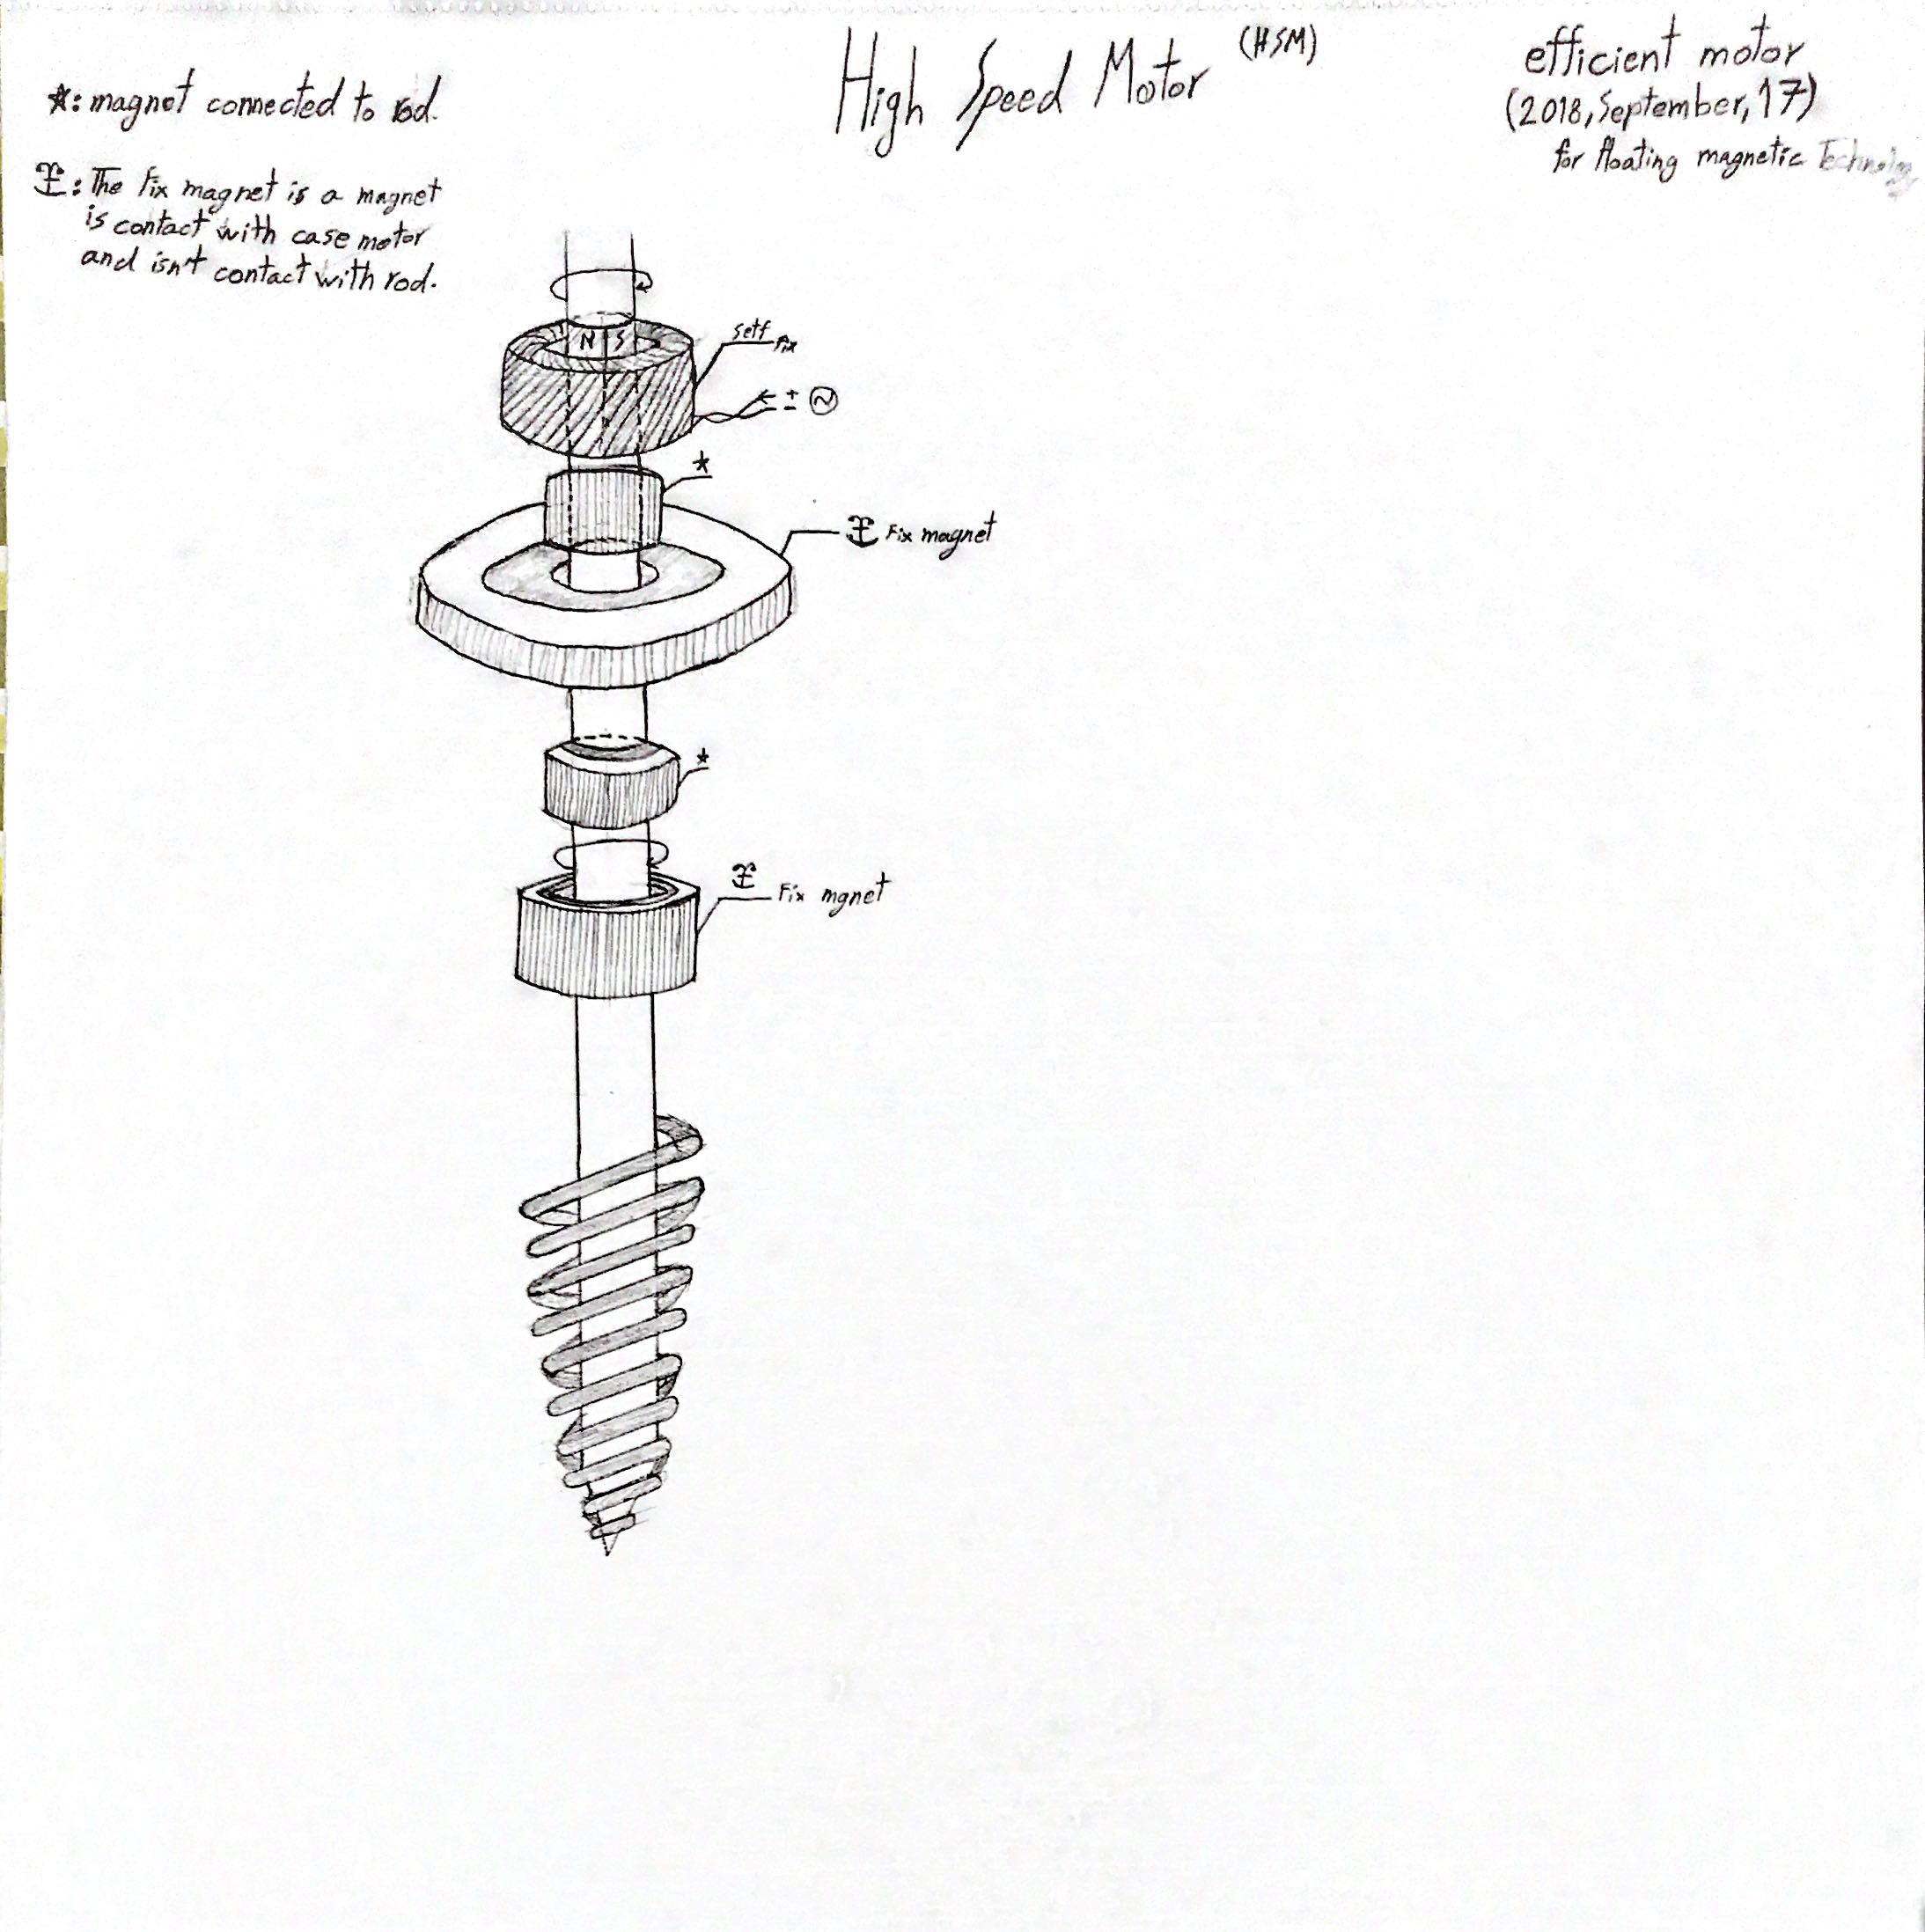 High Speed Motor (HSM)
efficient motor
(2018, September, 17)
for floating magnetic Technology
★: magnet connected to rod.
: The Fix magnet is a magnet
is contact with case motor
and isn't contact with rod.
N S
self fix
± ~
★
Fix magnet
★
Fix mgnet